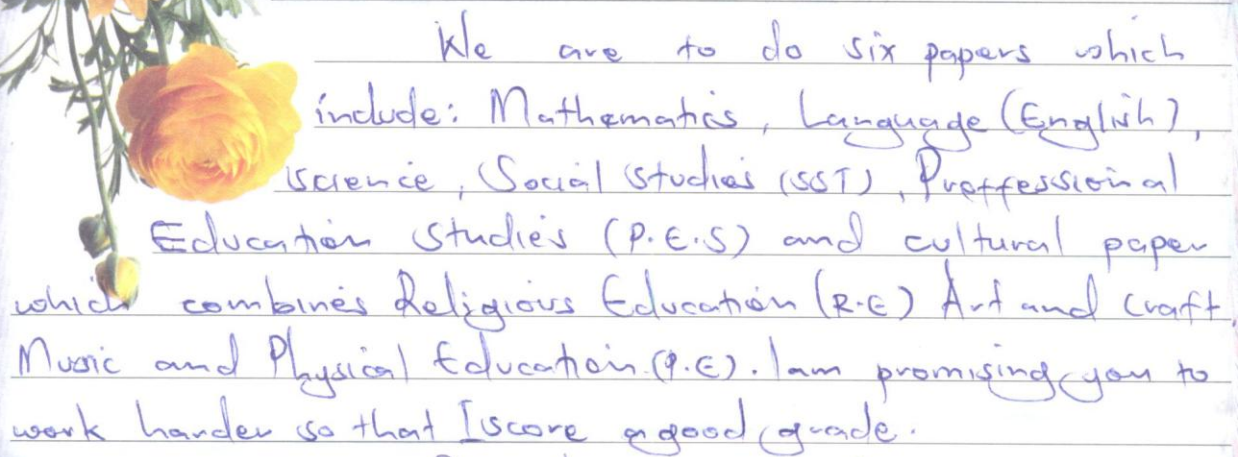 We are to do six papers which
include: Mathematics, Language (English),
Science, Social Studies (SST), Proffessional
Education Studies (P.E.S) and cultural paper
which combines Religious Education (R.E) Art and Craft,
Music and Physical Education (P.E). I am promising you to
work harder so that I score a good grade.